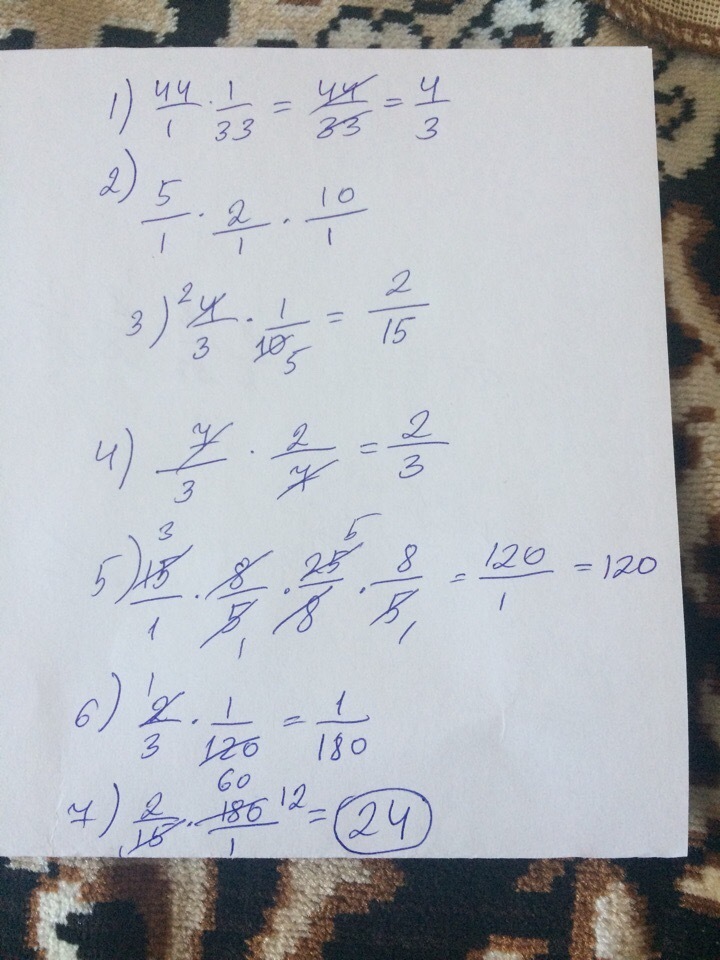 1) 44/1 · 1/33 = 44/33 = 4/3
2) 5/1 · 2/1 · 10/1
3) 2 4/3 · 1/10 5 = 2/15
4) 7/3 · 2/7 = 2/3
5) 3 15/1 · 8/5 1 · 25 5/8 · 8/5 1 = 120/1 = 120
6) 1 2/3 · 1/120 60 = 1/180
7) 2/15 1 · 180 12/1 = 24